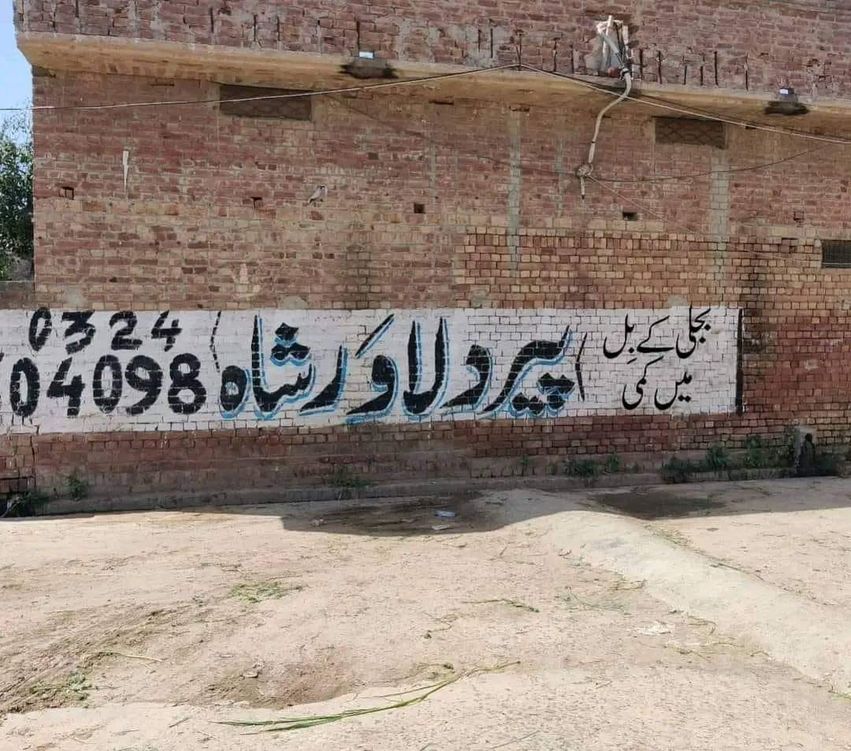 بجلی کے بِل
میں کمی
پیر دلاور شاہ
0324
04098